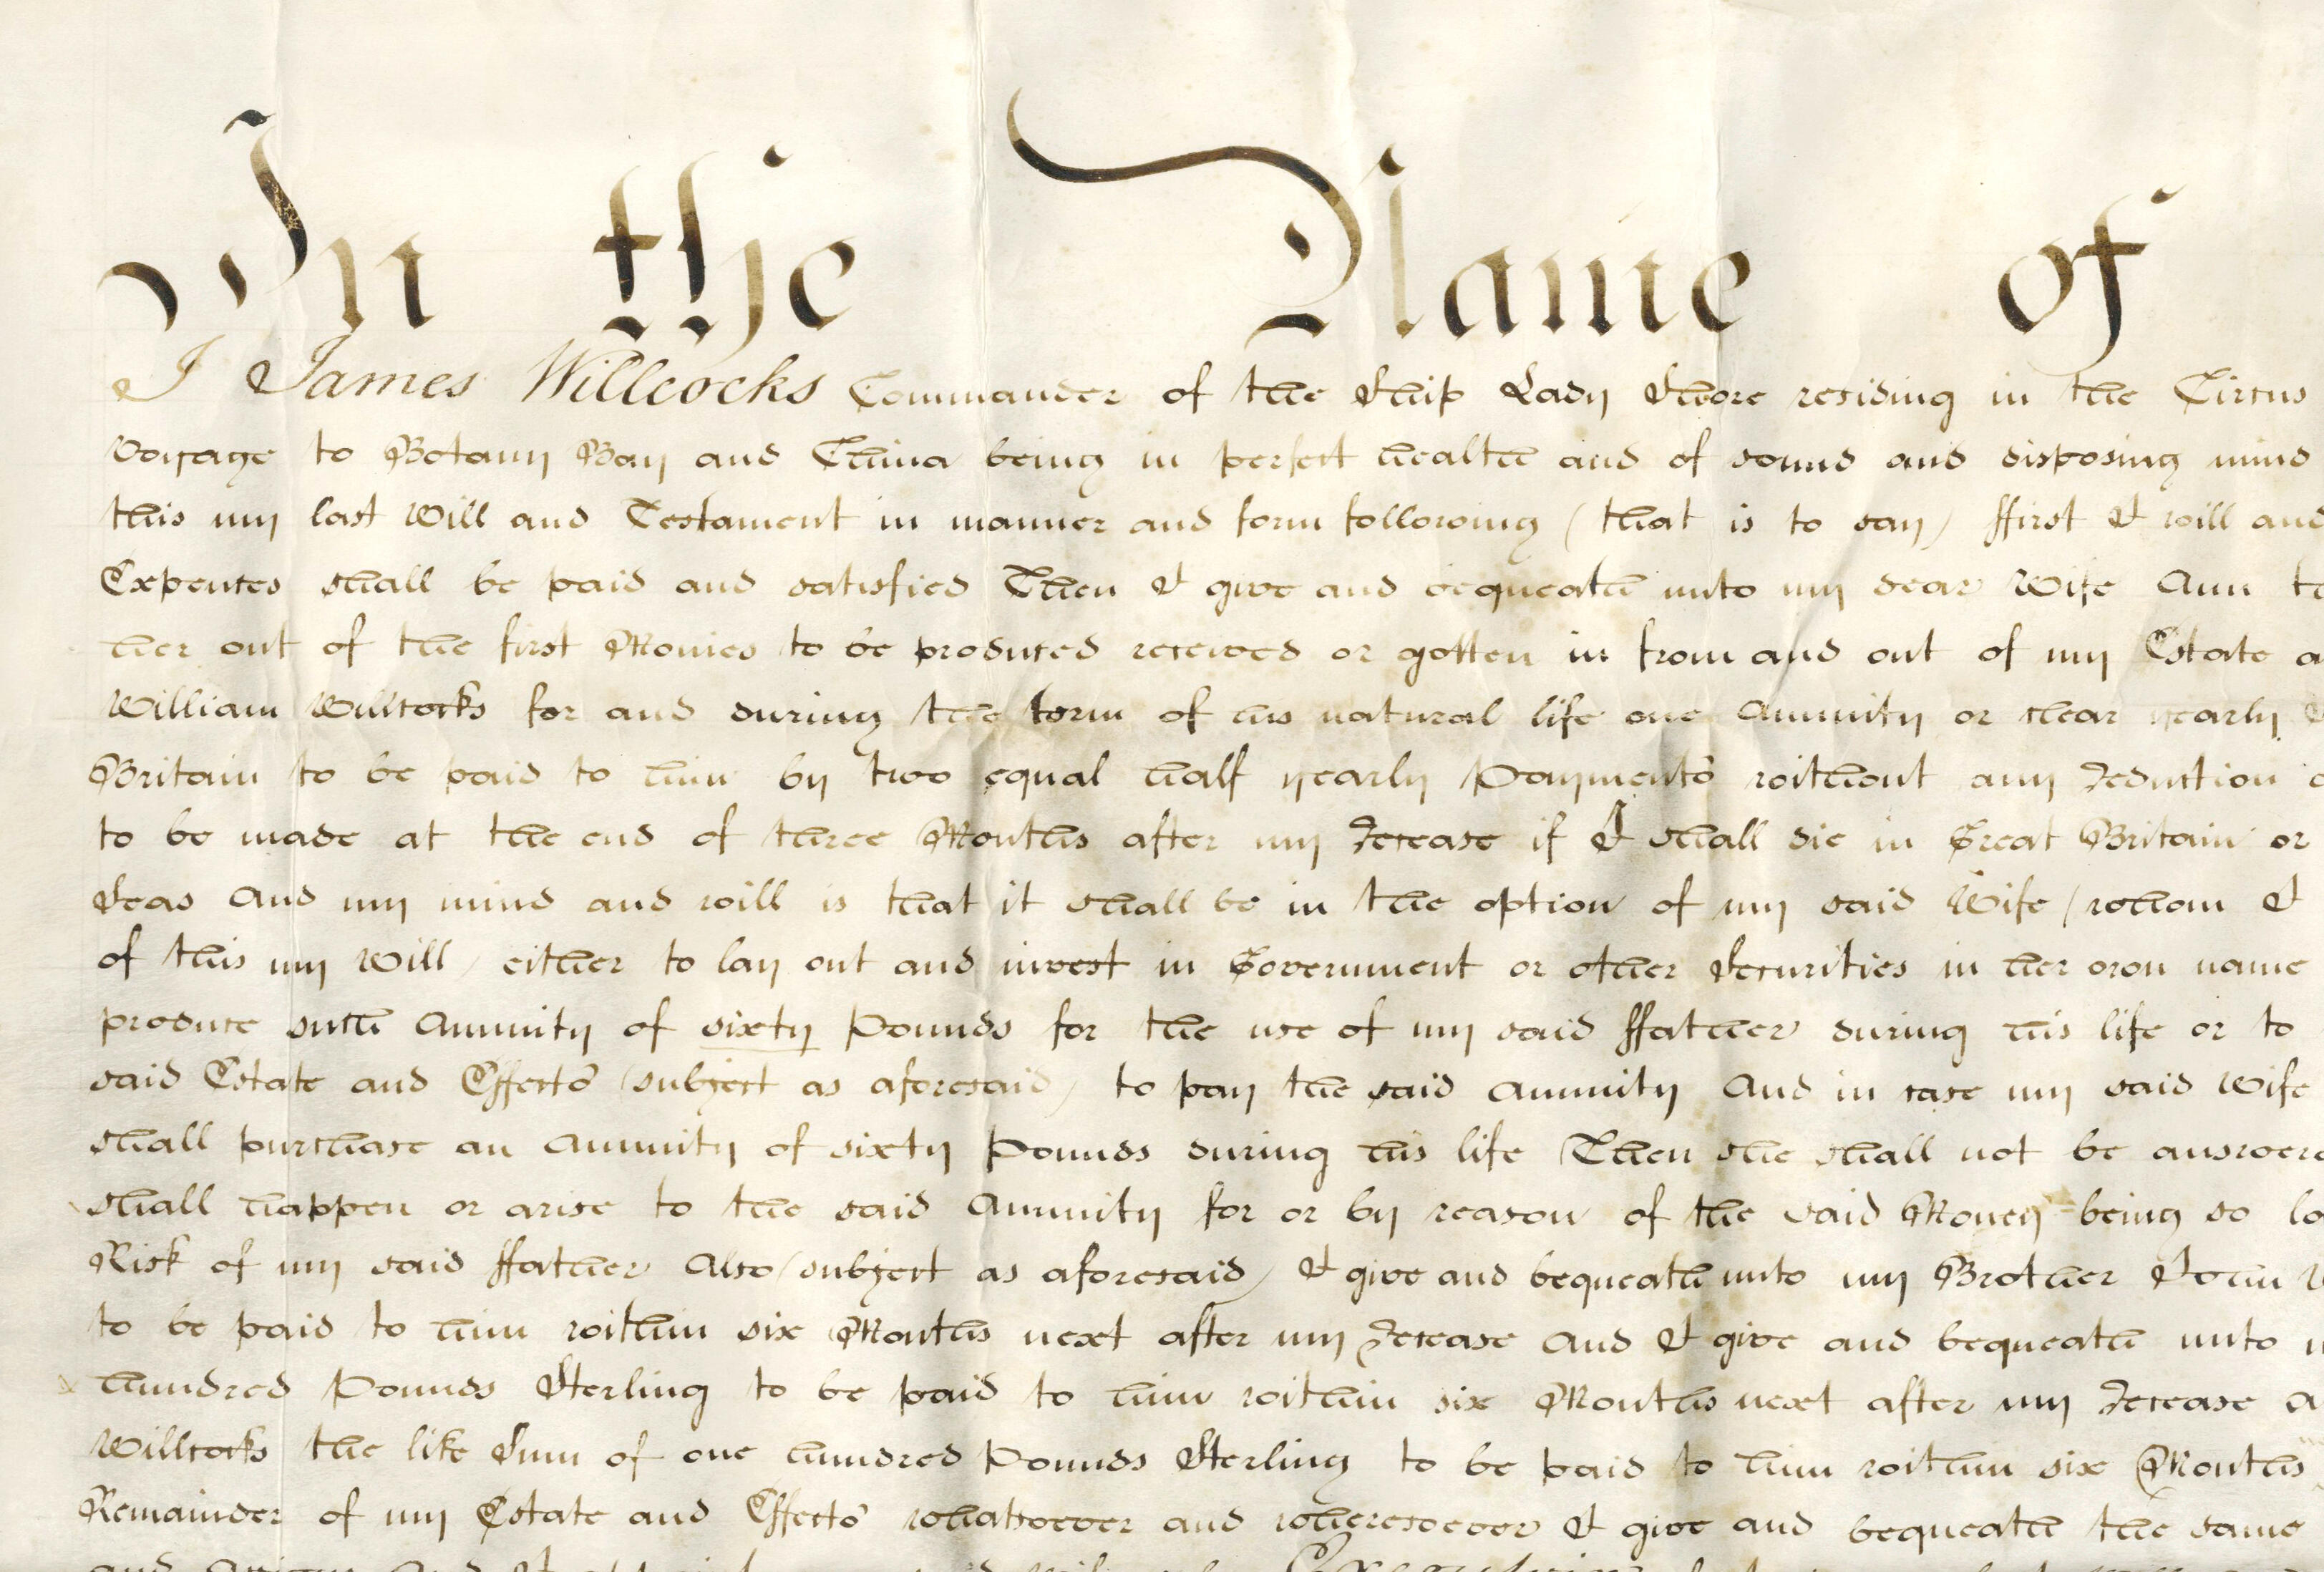 In the Name of
I James Willcocks Commander of the Ship Lady Shore residing in the Circus
Voyage to Botany Bay and China being in perfect health and of sound and disposing mind
this my last Will and Testament in manner and form following (that is to say) ffirst I will and
Expences shall be paid and satisfied Then I give and bequeath unto my dear Wife Ann
her out of the first Monies to be produced received or gotten in from and out of my Estate
William Willcocks for and during the term of his natural life one Annuity or clear yearly
Britain to be paid to him by two equal half yearly Payments without any Deduction
to be made at the end of three Months after my Decease if I shall die in Great Britain or
Seas And my mind and will is that it shall be in the option of my said Wife (whom I
of this my Will) either to lay out and invest in Government or other Securities in her own name
produce such Annuity of sixty Pounds for the use of my said ffather during his life or to
said Estate and Effects (subject as aforesaid) to pay the said Annuity And in case my said Wife
shall purchase an Annuity of sixty Pounds during his life Then she shall not be answer
shall happen or arise to the said Annuity for or by reason of the said Money being so
Risk of my said ffather Also (subject as aforesaid) I give and bequeath unto my Brother John
to be paid to him within six Months next after my Decease And I give and bequeath unto
hundred Pounds Sterling to be paid to him within six Months next after my Decease
Willcocks the like Sum of one hundred Pounds Sterling to be paid to him within six Months
Remainder of my Estate and Effects whatsoever and wheresoever I give and bequeath the same